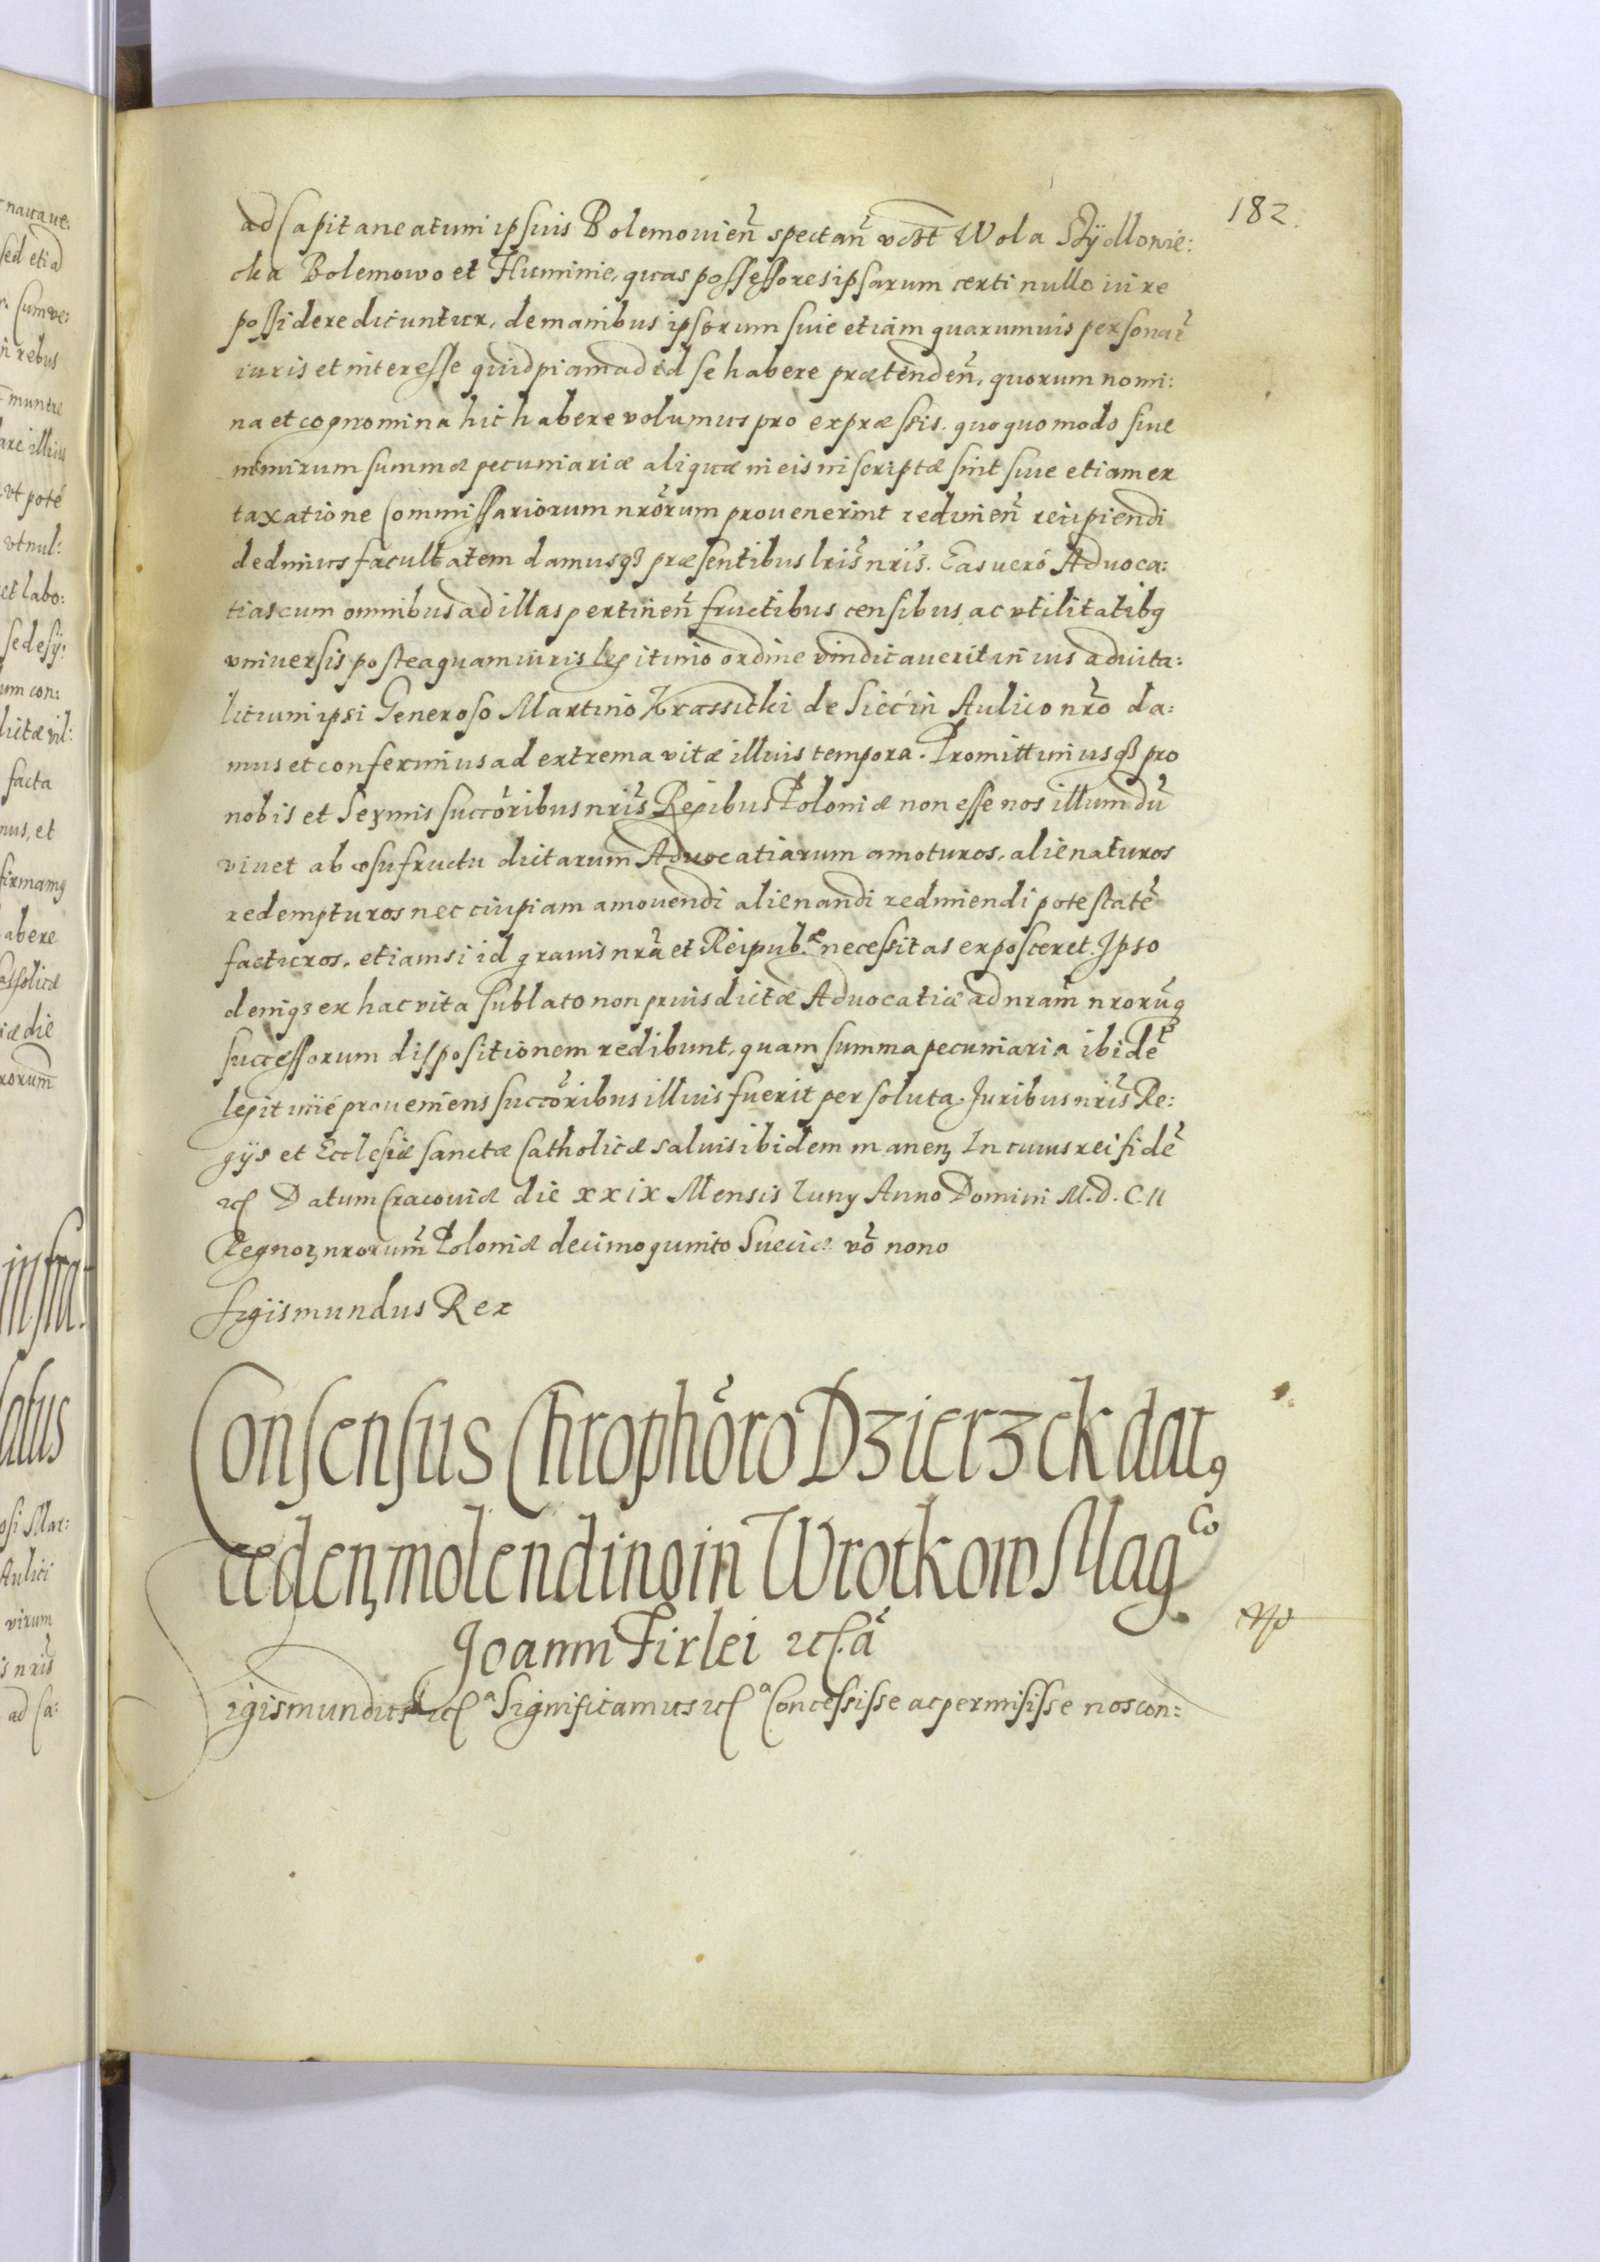 182.
ad Capitaneatum ipsius Bolemouien̄ spectan̄ vc̄bt Wola Szÿdlowie:
cka Bolemowo et Huminie, quas possessores ipsarum certi nullo iure
possidere dicuntur, de manibus ipsorum siue etiam quarumuis personar̄
iuris et interesse quidpiam ad id se habere prætenden̄, quorum nomi:
na et cognomina hic habere volumus pro expræssis. quoquomodo siue
nimirum summæ pecuniariæ aliquæ in eis inscriptæ sint siue etiam ex
taxatione Commissariorum nr̄orum prouenerint redimen̄ recipiendi
dedimus facultatem damusqꝫ præsentibus lr̄is nr̄is. Eas ueró Aduoca:
tias cum omnibus ad illas pertinen̄ fructibus censibus ac vtilitatibꝰ
vniuersis posteaquam iuris legitimo ordine vindicauerit in ius aduita:
litium ipsi Generoso Martino Krassicki de Siećin Aulico nr̄o da:
mus et conferimus ad extrema vitæ illius tempora. Promittimusqꝫ pro
nobis et Ser̄mis succōribus nr̄is Regibus Poloniæ non esse nos illum dū
viuet ab vsufructu dictarum Aduocatiarum amoturos, alienaturos
redempturos nec cuipiam amouendi alienandi redimendi potestatē
facturos, etiamsi id grauis nr̄a et Reipub.æ necessitas exposceret. Ipso
deniqꝫ ex hac vita sublato non prius dictæ Aduocatiæ ad nr̄am nrorūqꝫ
successorum dispositionem redibunt, quam summa pecuniaria ibidē
legitimé proueniens succōribus illius fuerit persoluta. Juribus nr̄is Re:
gijs et Ecclesiæ sanctæ Catholicæ saluis ibidem manenꝫ In cuius rei fidē
etc Datum Cracouiæ die xxix Mensis Iuny Anno Domini M.D.C.II
Regnoꝝ nrorum̄ Poloniæ decimoquinto Sueciæ vō nono
Sigismundus Rex
Consensus Chrophōro Dzierzek datꝰ
cedenꝫ molendino in Wrotkow Mag.co
Joanni Firlei etc.a
Sigismundus etc.a Significamus etc.a Concessisse ac permisisse nos con: